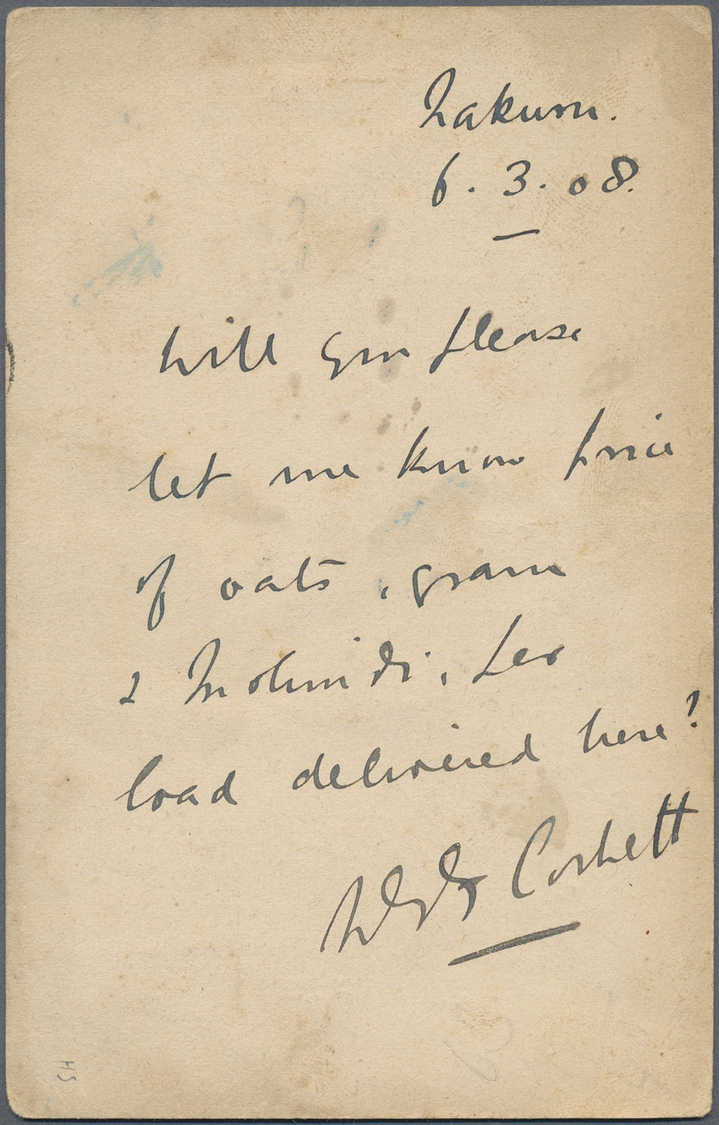 Nakuru.
6. 3. 08.
Will you please
let me know price
of oats, gram
& Mohindi, per
load delivered here?
Corbett
HS